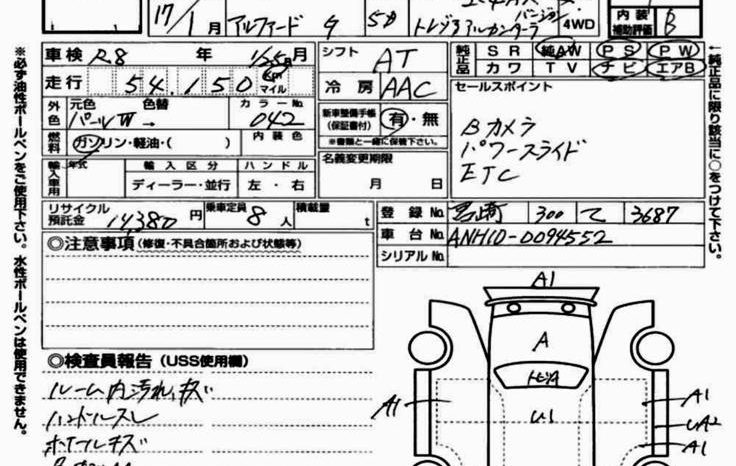 17/1月 アルファード G 5D 4WD
内装補助評価 B
車検 R8 年 1/5月
シフト AT
純正品 SR 純AW PS PW
カワ TV ナビ エアB
走行 54,150 Km マイル
冷房 AAC
セールスポイント
外色 元色 色替 カラーNo.
パールW → 042
新車整備手帳(保証書付) 有・無
※書類と一緒に保管下さい。
Bカメラ
パワースライド
ETC
燃料 ガソリン・軽油・( ) 内装色
名義変更期限
月 日
輸入車用 年式 輸入区分 ハンドル
ディーラー・並行 左・右
リサイクル預託金 14,380円 乗車定員 8人 積載量 t
登録No. 300 て 3687
車台No. ANH10-0094552
シリアルNo.
◎注意事項(修復・不具合個所および状態等)
◎検査員報告(USS使用欄)
ルーム内汚れ、キズ
ハンドルスレ
ホイールキズ
A1
A
A1
U1
A1
UA2
A1
※必ず油性ボールペンをご使用下さい。水性ボールペンは使用できません。
←純正品に限り該当に○をつけて下さい。